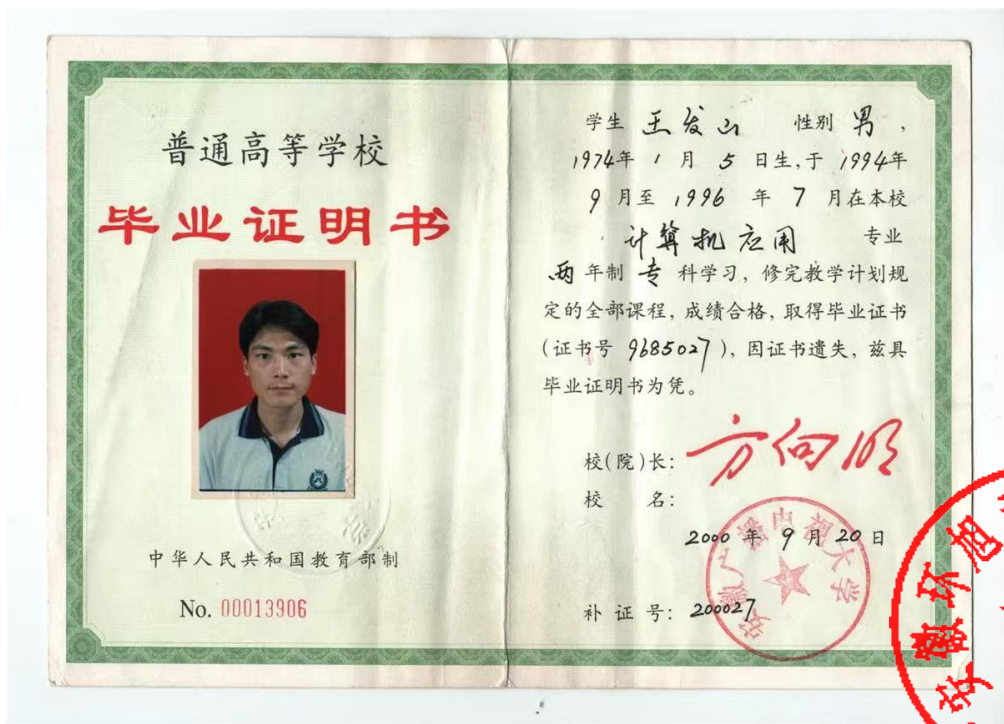 普通高等学校
毕业证明书
中华人民共和国教育部制
No. 00013906
学生 王发山 性别 男，
1974年 1 月 5 日生,于 1994年
9 月至 1996 年 7 月在本校
计算机应用 专业
两 年制 专 科学习，修完教学计划规
定的全部课程，成绩合格，取得毕业证书
(证书号 9685027)，因证书遗失，兹具
毕业证明书为凭。
校(院)长: 方向明
校 名:
安徽广播电视大学
2000 年 9 月 20 日
补 证 号: 200027
安徽环旭